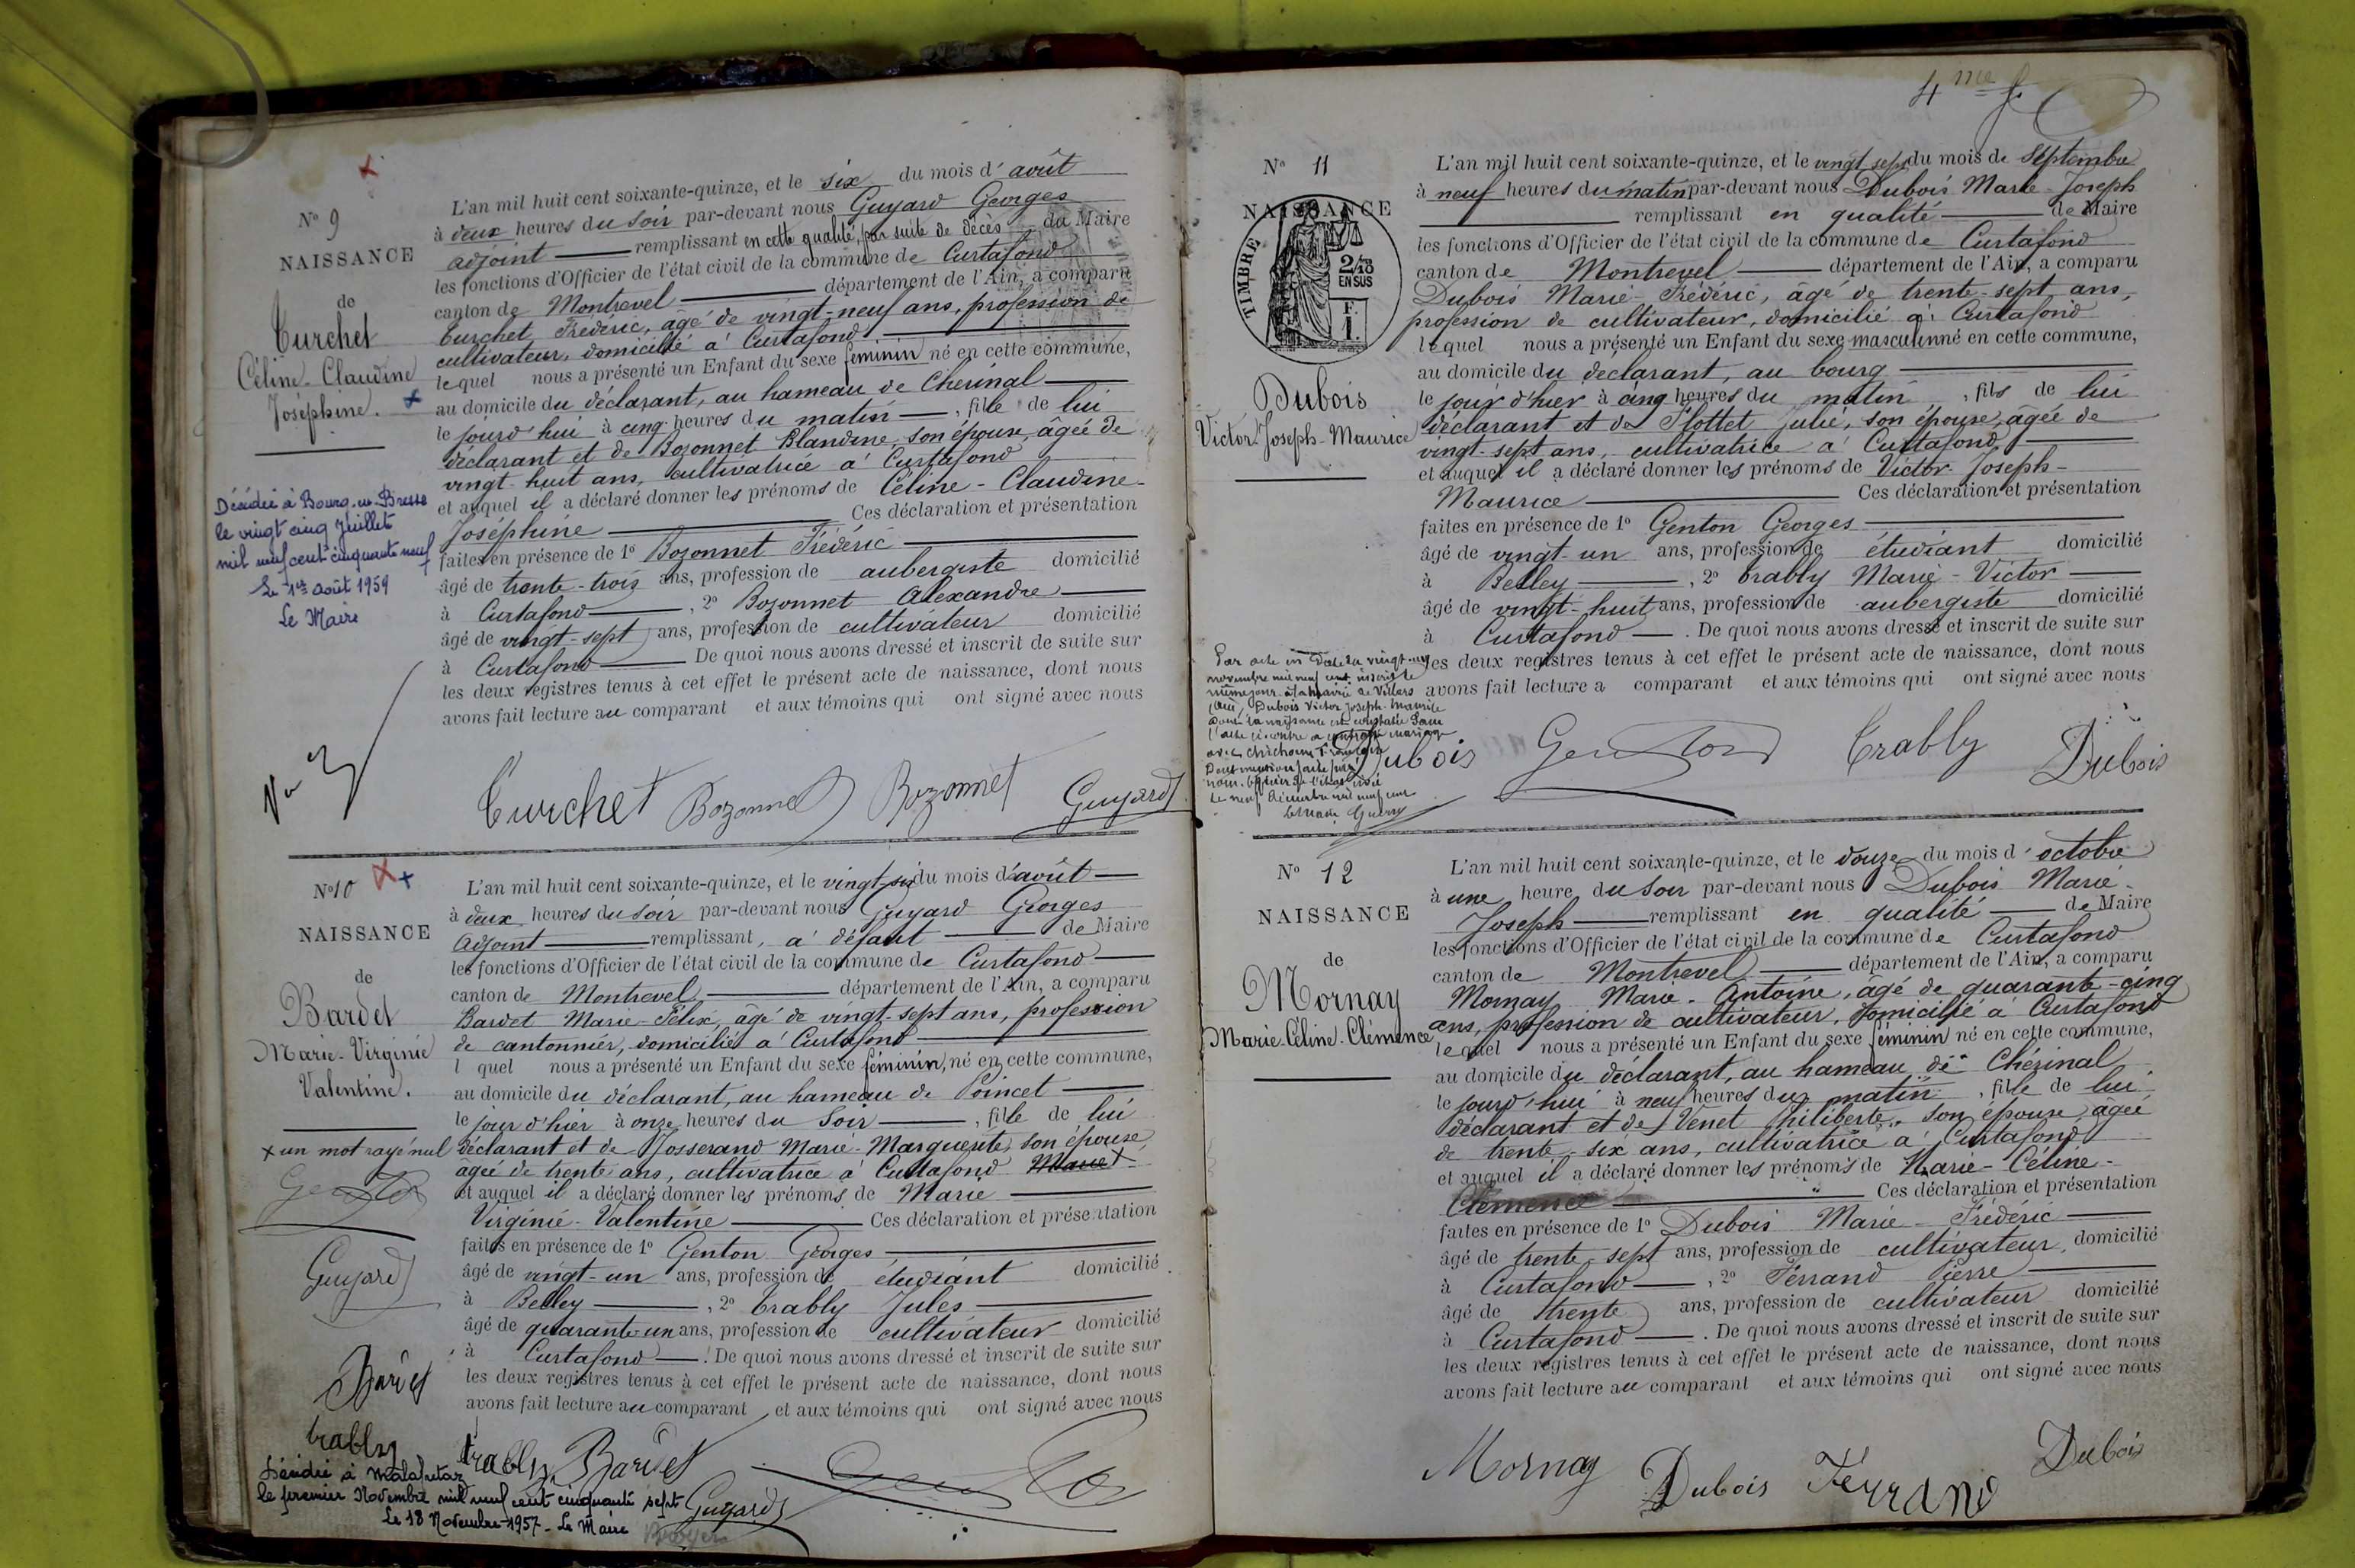 N° 9
NAISSANCE
de
Curchet
Céline-Claudine
Joséphine.
Décédée à Bourg-en-Bresse
le vingt cinq Juillet
mil neuf cent cinquante neuf
Le 1er Août 1959
Le Maire
L'an mil huit cent soixante-quinze, et le six du mois d'août
à deux heures du soir par-devant nous Guyard Georges
adjoint remplissant en cette qualité, par suite de décès du Maire
les fonctions d'Officier de l'état civil de la commune de Curtafond
canton de Montrevel département de l'Ain, a comparu
Curchet Frédéric, âgé de vingt-neuf ans, profession de
cultivateur, domicilié à Curtafond
lequel nous a présenté un Enfant du sexe féminin né en cette commune,
au domicile du déclarant, au hameau de Cherinal
le jourd'hui à cinq heures du matin, fille de lui
déclarant et de Bozonnet Blandine, son épouse, âgée de
vingt-huit ans, cultivatrice à Curtafond
et auquel il a déclaré donner les prénoms de Céline-Claudine-
Joséphine Ces déclaration et présentation
faites en présence de 1° Bozonnet Frédéric
âgé de trente-trois ans, profession de aubergiste domicilié
à Curtafond, 2° Bozonnet Alexandre
âgé de vingt-sept ans, profession de cultivateur domicilié
à Curtafond De quoi nous avons dressé et inscrit de suite sur
les deux registres tenus à cet effet le présent acte de naissance, dont nous
avons fait lecture au comparant et aux témoins qui ont signé avec nous
Curchet Bozonnet Bozonnet Guyard
N° 10
NAISSANCE
de
Bardet
Marie-Virginie
Valentine.
x un mot rayé nul
Genton
Guyard
Bardet
Trably
Décédée à Malafretaz
le premier Novembre mil neuf cent cinquante sept
Le 18 Novembre 1957 - Le Maire
L'an mil huit cent soixante-quinze, et le vingt-six du mois d'août
à deux heures du soir par-devant nous Guyard Georges
Adjoint remplissant, à défaut de Maire
les fonctions d'Officier de l'état civil de la commune de Curtafond
canton de Montrevel département de l'Ain, a comparu
Bardet Marie-Félix, âgé de vingt-sept ans, profession
de cantonnier, domicilié à Curtafond
l quel nous a présenté un Enfant du sexe féminin, né en cette commune,
au domicile du déclarant, au hameau de Poincet
le jour d'hier à onze heures du soir, fille de lui
déclarant et de Josserand Marie-Marguerite, son épouse,
âgée de trente ans, cultivatrice à Curtafond Marie x
et auquel il a déclaré donner les prénoms de Marie
Virginie-Valentine Ces déclaration et présentation
faites en présence de 1° Genton Georges
âgé de vingt-un ans, profession de étudiant domicilié
à Belley, 2° Trably Jules
âgé de quarante-un ans, profession de cultivateur domicilié
à Curtafond. De quoi nous avons dressé et inscrit de suite sur
les deux registres tenus à cet effet le présent acte de naissance, dont nous
avons fait lecture au comparant et aux témoins qui ont signé avec nous
Trably Bardet Genton
Guyard
4me f.
N° 11
NAISSANCE
TIMBRE
2/10
EN SUS
F.
1.
Dubois
Victor-Joseph-Maurice
L'an mil huit cent soixante-quinze, et le vingt-sept du mois de Septembre
à neuf heures du matin par-devant nous Dubois Marie-Joseph
remplissant en qualité de Maire
les fonctions d'Officier de l'état civil de la commune de Curtafond
canton de Montrevel département de l'Ain, a comparu
Dubois Marie-Frédéric, âgé de trente-sept ans,
profession de cultivateur, domicilié à Curtafond
lequel nous a présenté un Enfant du sexe masculin né en cette commune,
au domicile du déclarant, au bourg
le jour d'hier à cinq heures du matin, fils de lui
déclarant et de Flottet Julie, son épouse, âgée de
vingt-sept ans, cultivatrice à Curtafond,
et auquel il a déclaré donner les prénoms de Victor-Joseph-
Maurice Ces déclaration et présentation
faites en présence de 1° Genton Georges
âgé de vingt-un ans, profession de étudiant domicilié
à Belley, 2° Trably Marie-Victor
âgé de vingt-huit ans, profession de aubergiste domicilié
à Curtafond. De quoi nous avons dressé et inscrit de suite sur
les deux registres tenus à cet effet le présent acte de naissance, dont nous
avons fait lecture a comparant et aux témoins qui ont signé avec nous
Par acte en date du vingt-un
novembre mil neuf cent inscrit le
même jour à la mairie de Villars
(Ain) Dubois Victor Joseph-Maurice
dont la naissance est constatée dans
l'acte ci-contre a contracté mariage
avec
Dont mention faite par
nous officier de l'état civil
le neuf décembre mil neuf cent
le Maire
Dubois Genton Trably Dubois
N° 12
NAISSANCE
de
Mornay
Marie-Céline-Clémence
L'an mil huit cent soixante-quinze, et le douze du mois d'octobre
à une heure du soir par-devant nous Dubois Marie-
Joseph remplissant en qualité de Maire
les fonctions d'Officier de l'état civil de la commune de Curtafond
canton de Montrevel département de l'Ain, a comparu
Mornay Marie-Antoine, âgé de quarante-cinq
ans, profession de cultivateur, domicilié à Curtafond
lequel nous a présenté un Enfant du sexe féminin né en cette commune,
au domicile du déclarant, au hameau de Chérinal
le jourd'hui à neuf heures du matin, fille de lui
déclarant et de Venet Philiberte, son épouse, âgée
de trente-six ans, cultivatrice à Curtafond
et auquel il a déclaré donner les prénoms de Marie-Céline-
Clémence Ces déclaration et présentation
faites en présence de 1° Dubois Marie-Frédéric
âgé de trente-sept ans, profession de cultivateur, domicilié
à Curtafond, 2° Ferrand Pierre
âgé de trente ans, profession de cultivateur domicilié
à Curtafond. De quoi nous avons dressé et inscrit de suite sur
les deux registres tenus à cet effet le présent acte de naissance, dont nous
avons fait lecture au comparant et aux témoins qui ont signé avec nous
Mornay Dubois Ferrand Dubois